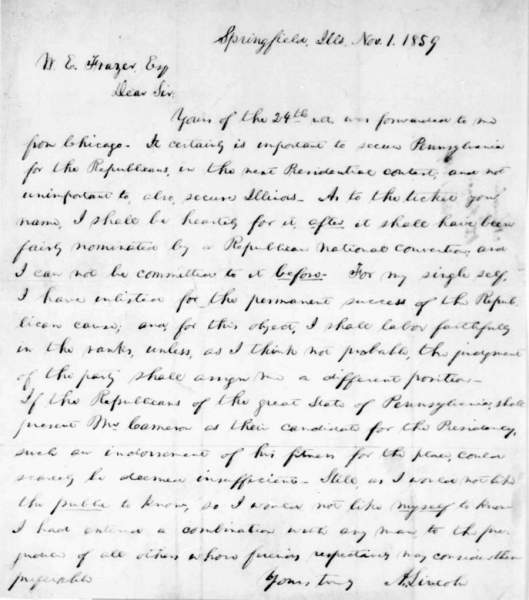 Springfield, Ills, Nov. 1. 1859
W. E. Frazer, Esq
Dear Sir:
Yours of the 24th ult. was forwarded to me
from Chicago. It certainly is important to secure Pennsylvania
for the Republicans, in the next Presidential contest; and not
unimportant to, also, secure Illinois. As to the ticket you
name, I shall be heartily for it, after it shall have been
fairly nominated by a Republican national convention; and
I can not be committed to it before. For my single self,
I have enlisted for the permanent success of the Repub-
lican cause; and, for this object, I shall labor faithfully
in the ranks, unless, as I think not probable, the judgment
of the party shall assign me a different position.
If the Republicans of the great State of Pennsylvania, shall
present Mr. Cameron as their candidate for the Presidency,
such an indorsement of his fitness for the place, could
scarcely be deemed insufficient. Still, as I would not like
the public to know, so I would not like myself to know
I had entered a combination with any man, to the pre-
judice of all others whose friends respectively may consider them
preferable
Yours truly A. Lincoln